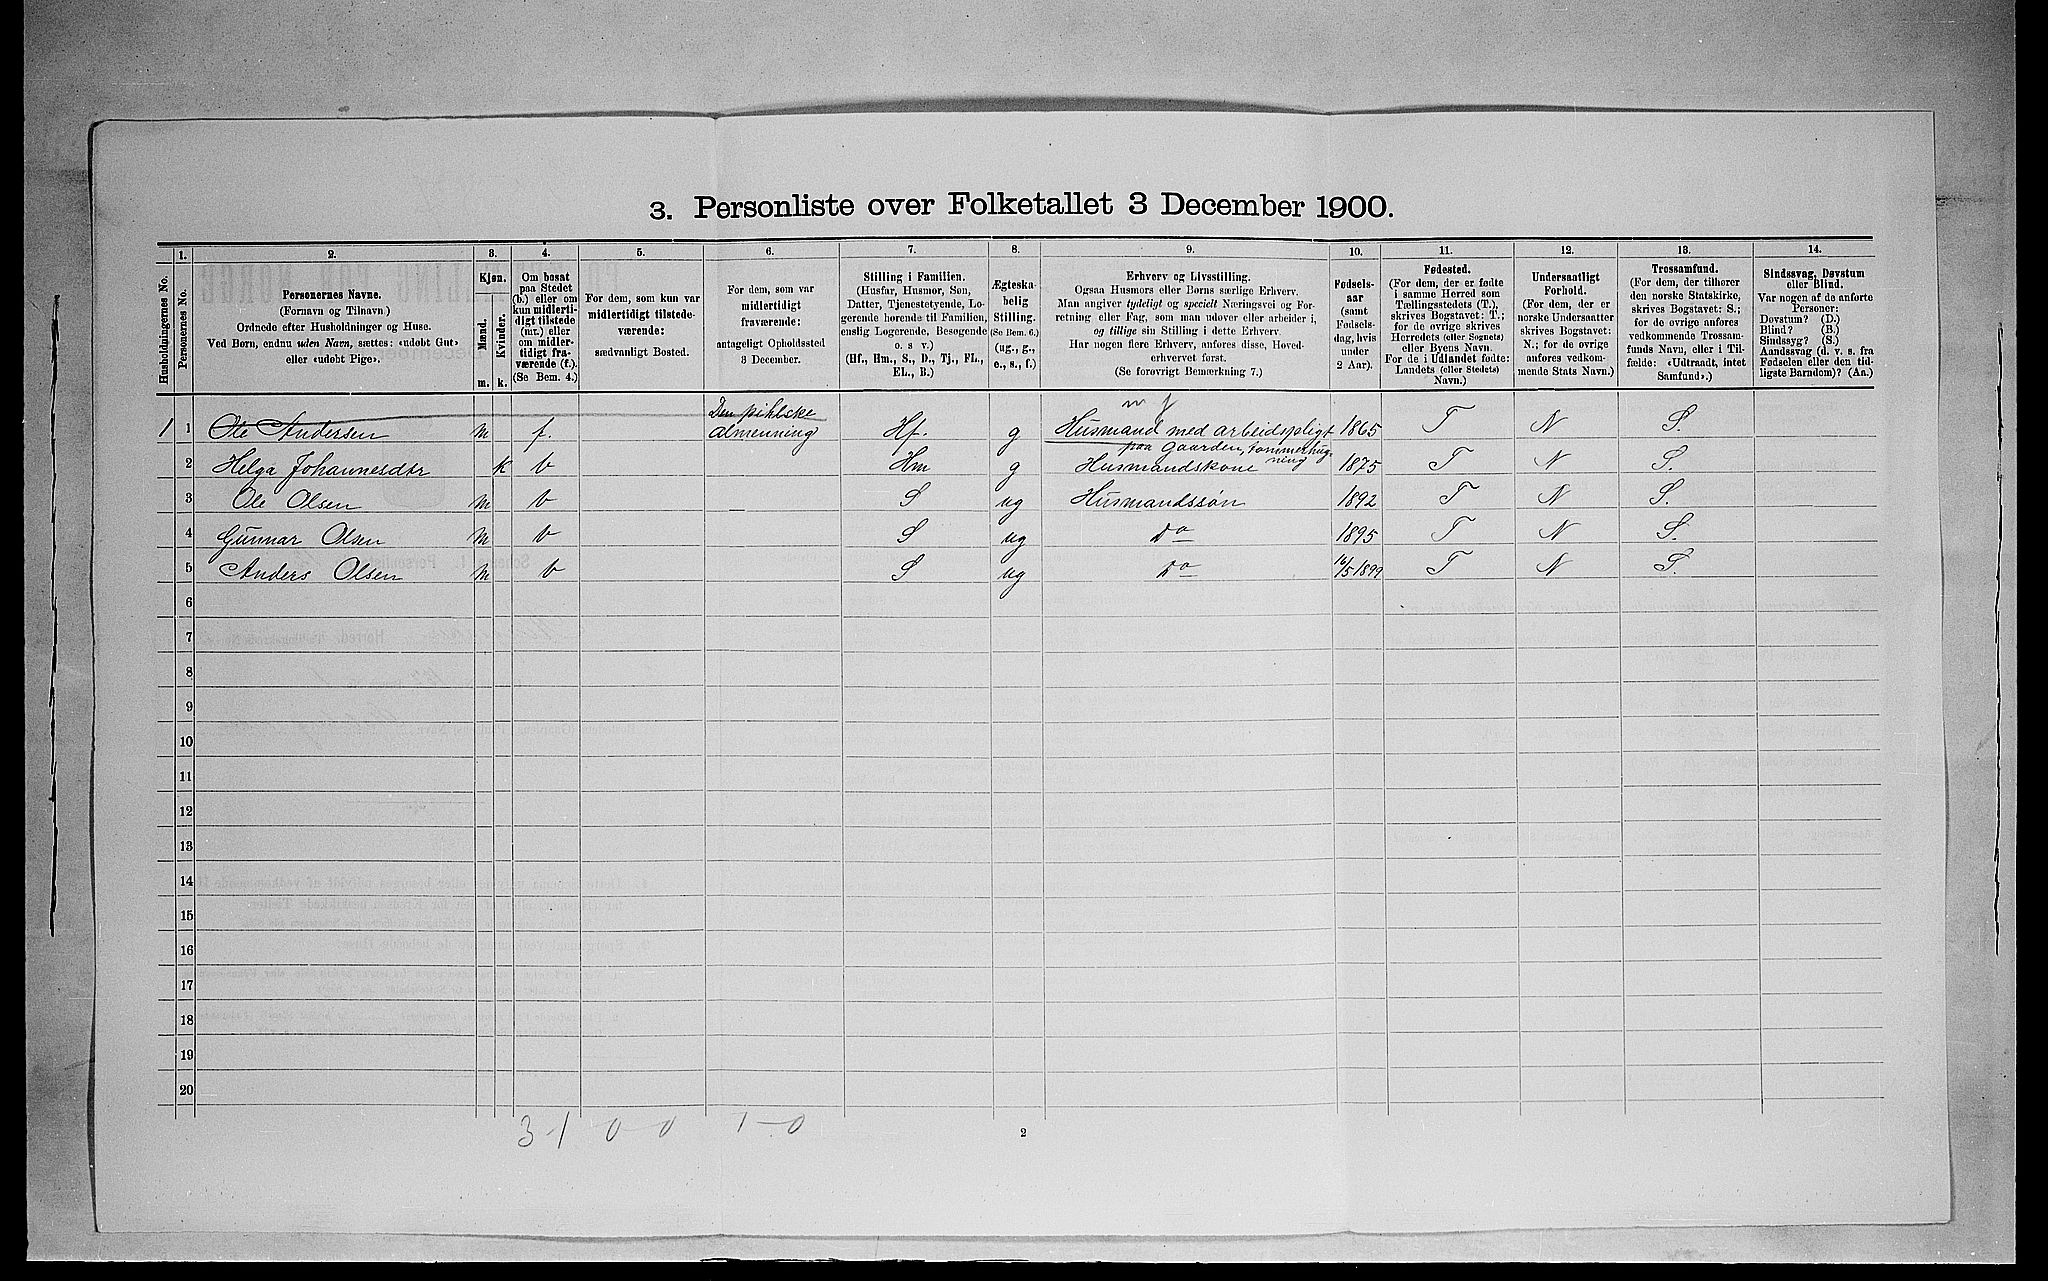 3. Personliste over Folketallet 3 December 1900.
1. 2. 3. 4. 5. 6. 7. 8. 9. 10. 11. 12. 13. 14.
Husholdningernes No.
Personernes No.
Personernes Navne.
(Fornavn og Tilnavn.)
Ordnede efter Husholdninger og Huse.
Ved Børn, endnu uden Navn, sættes: «udøbt Gut»
eller «udøbt Pige».
Kjøn.
Mænd.
Kvinder.
m. k.
Om bosat
paa Stedet
(b.) eller om
kun midlerti-
digt tilstede
(mt.) eller
om midler-
tidigt fra-
værende (f.).
(Se Bem. 4.)
For dem, som kun var
midlertidigt tilstede-
værende:
sædvanligt Bosted.
For dem, som var
midlertidigt
fraværende:
antageligt Opholdssted
3 December.
Stilling i Familien.
(Husfar, Husmor, Søn,
Datter, Tjenestetyende, Lo-
gerende hørende til Familien,
enslig Logerende, Besøgende
o. s. v.)
(Hf., Hm., S., D., Tj., FL.,
EL., B.)
Ægteska-
belig
Stilling.
(Se Bem. 6.)
(ug., g.,
e., s., f.)
Erhverv og Livsstilling.
Ogsaa Husmors eller Børns særlige Erhverv.
Man angiver tydeligt og specielt Næringsvei og For-
retning eller Fag, som man udøver eller arbeider i,
og tillige sin Stilling i dette Erhverv.
Har nogen flere Erhverv, anføres disse, Hoved-
erhvervet først.
(Se forøvrigt Bemærkning 7.)
Fødsels-
aar
(samt
Fødsels-
dag, hvis
under
2 Aar).
Fødested.
(For dem, der er fødte
i samme Herred som
Tællingsstedets (T.),
skrives Bogstavet: T.;
for de øvrige skrives
Herredets (eller Sognets)
eller Byens Navn.
For de i Udlandet fødte:
Landets (eller Stedets)
Navn.)
Undersaatligt
Forhold.
(For dem, der er
norske Undersaatter
skrives Bogstavet:
N.; for de øvrige
anføres vedkom-
mende Stats Navn.)
Trossamfund.
(For dem, der tilhører
den norske Statskirke,
skrives Bogstavet: S.;
for de øvrige anføres
vedkommende Trossam-
funds Navn, eller i Til-
fælde: «Udtraadt, intet
Samfund».)
Sindssvag, Døvstum
eller Blind.
Var nogen af de anførte
Personer:
Døvstum? (D.)
Blind? (B.)
Sindssyg? (S.)
Aandssvag (d. v. s. fra
Fødselen eller den tid-
ligste Barndom)? (Aa.)
1 1 Ole Andersen m f. Den pihlske almenning Hf. g Husmand med arbeidspligt paa Gaarden, tømmerhugning 1865 T N S.
2 Helga Johannesdtr k b Hm g Husmandskone 1875 T N S.
3 Ole Olsen m b S ug Husmandssøn 1892 T N S.
4 Gunnar Olsen m b S ug Do 1895 T N S.
5 Anders Olsen m b S ug Do 1899 T N S.
6
7
8
9
10
11
12
13
14
15
16
17
18
19
20
3-1 0-0 1-0
2